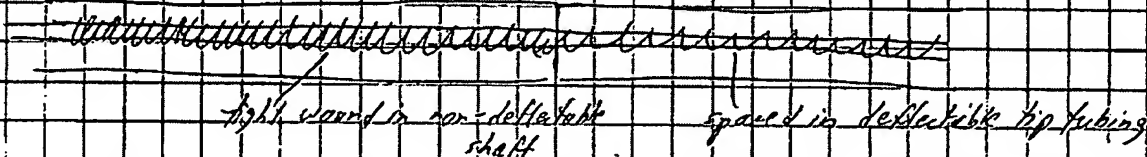 tight wound in non-deflectable spaced in deflectible tip tubing
shaft